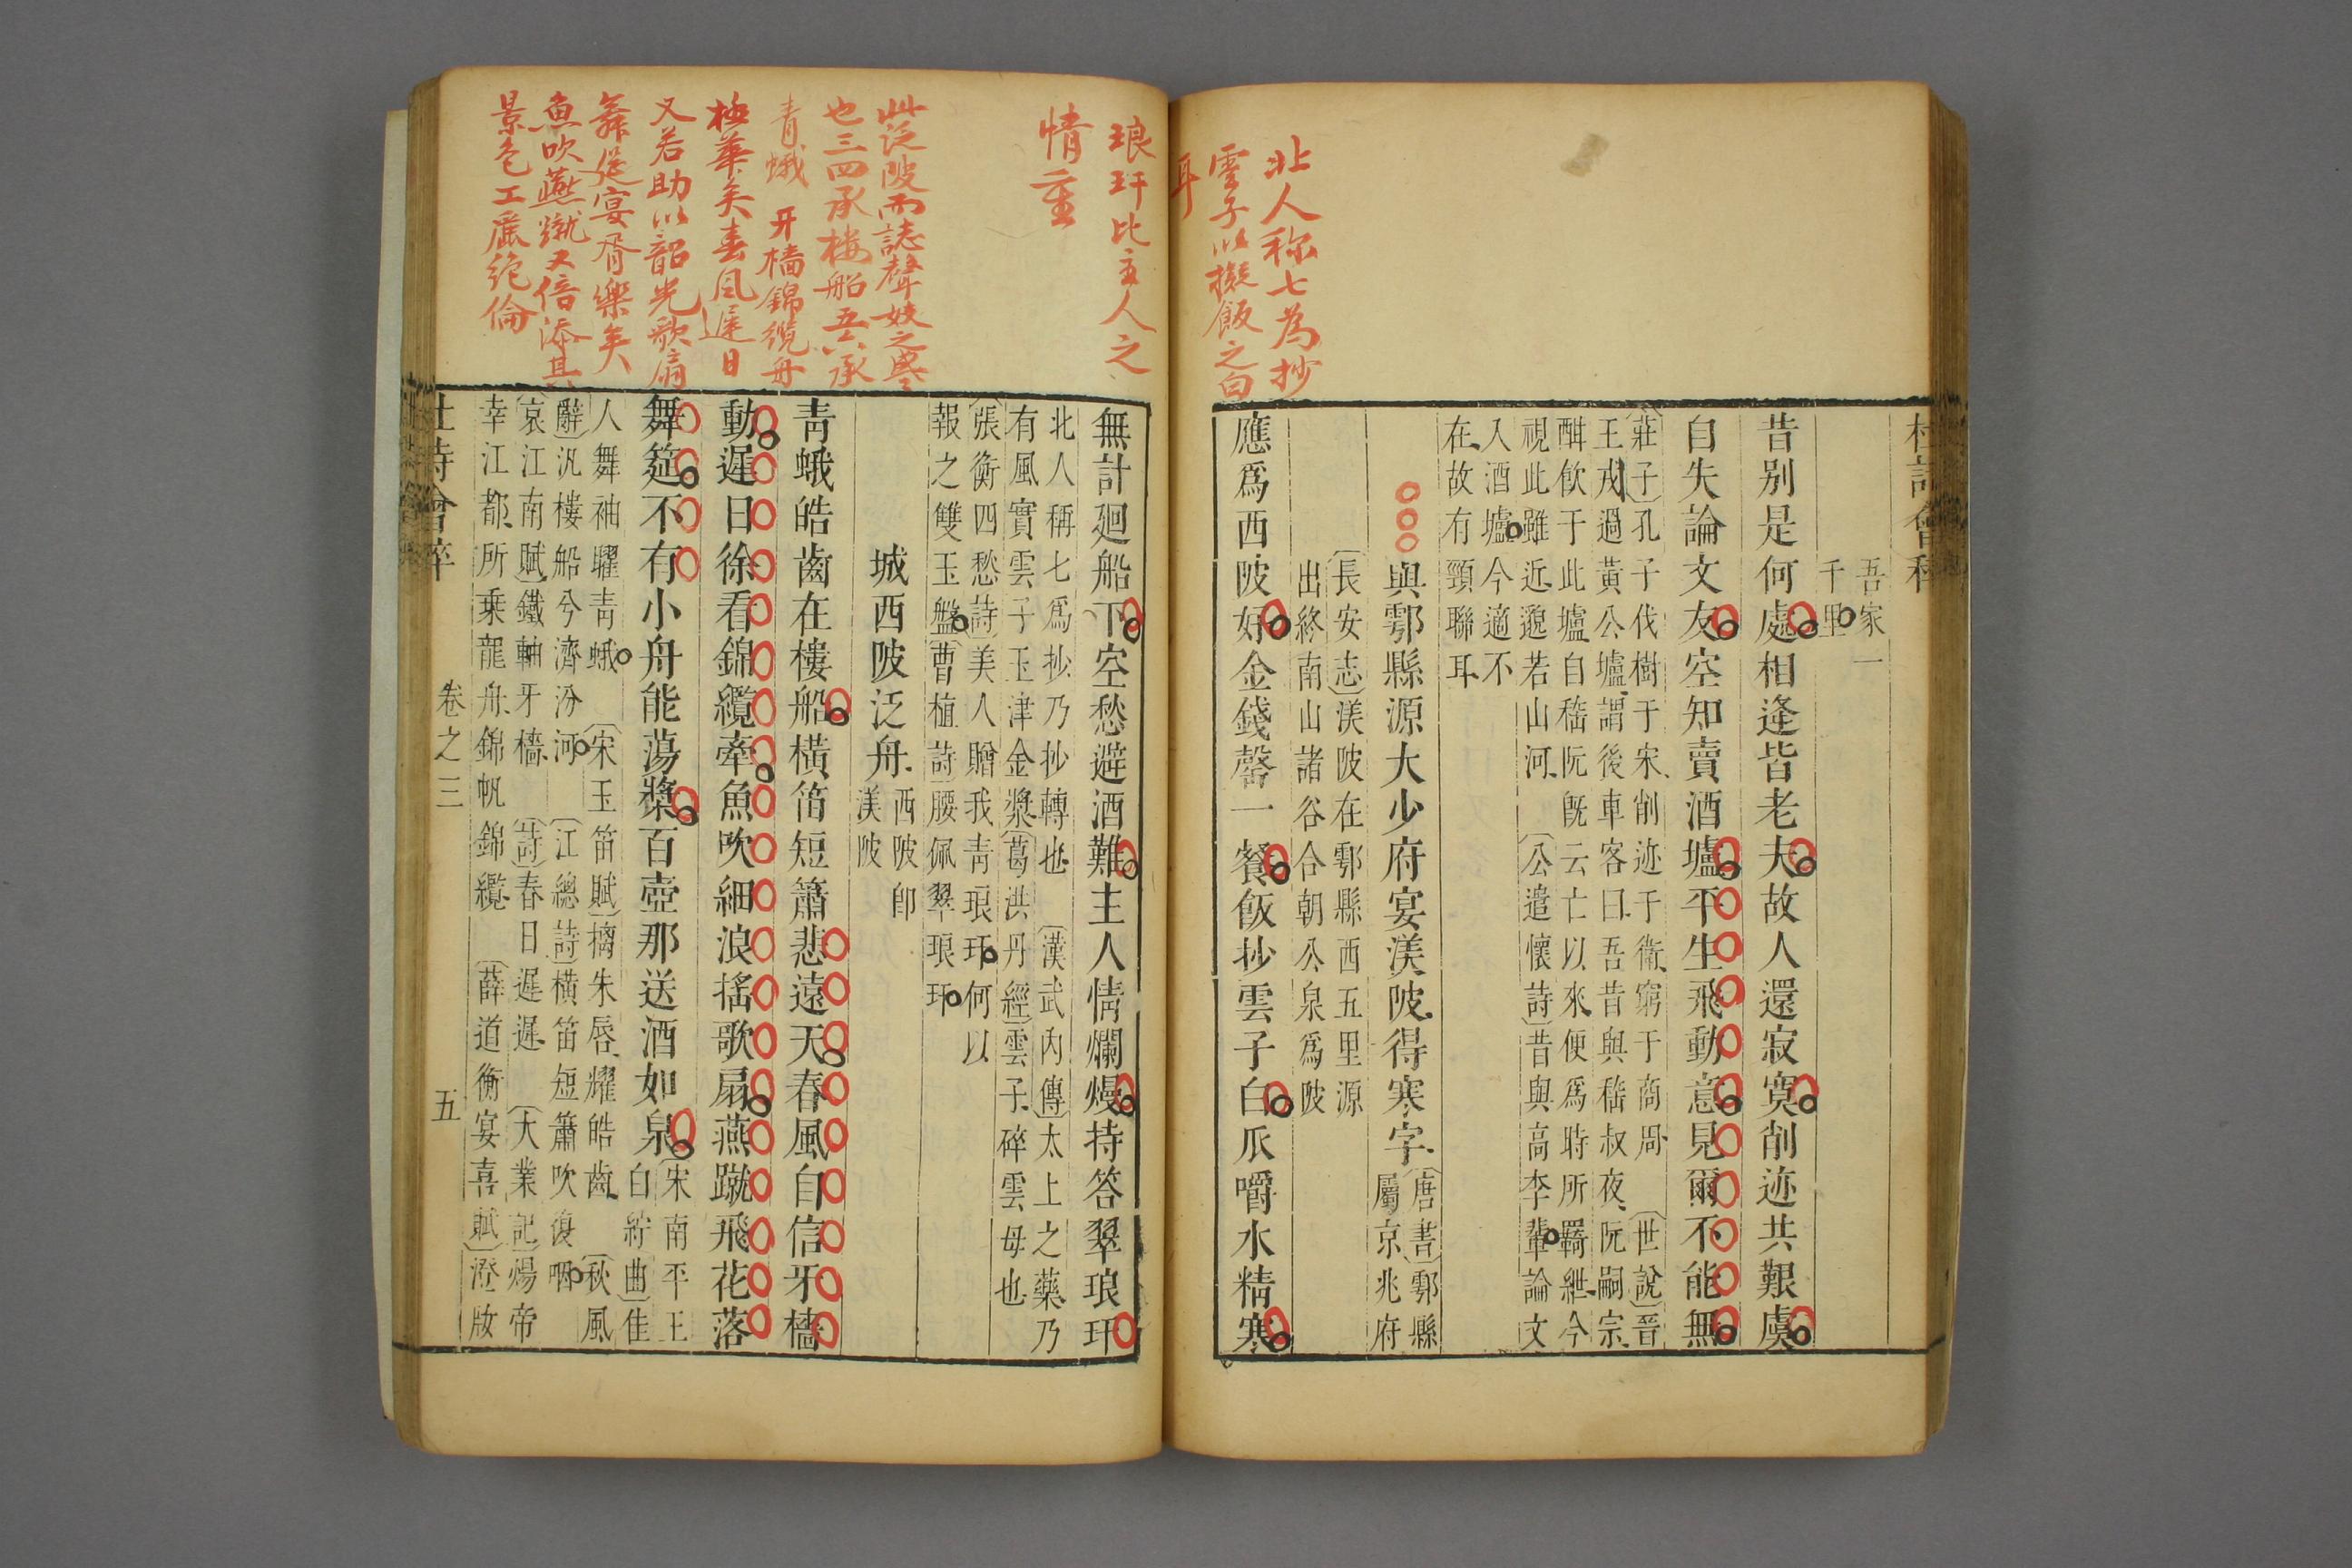 杜詩會稡
吾家一
千里
昔别是何處相逢皆老夫故人還寂寞削迹共艱虞
自失論文友空知賣酒壚平生飛動意見爾不能無
莊子孔子伐樹于宋削迹于衛窮于商周 世說晉
王戎過黃公壚謂後車客曰吾昔與嵇叔夜阮嗣宗
酣飲于此壚自嵇阮旣云亡以來便爲時所羈紲今
視此雖近邈若山河 公遣懷詩昔與高李輩論文
入酒壚今適不
在故有頸聯耳
與鄠縣源大少府宴渼陂得寒字
唐書鄠縣
屬京兆府
長安志渼陂在鄠縣西五里源
出終南山諸谷合朝公泉爲陂
應爲西陂好金錢罄一餐飯抄雲子白瓜嚼水精寒
北人称七為抄
雲子以擬飯之白
耳
無計廻船下空愁避酒難主人情爛熳持答翠琅玕
北人稱七爲抄乃抄轉也 漢武內傳太上之藥乃
有風實雲子玉津金漿葛洪丹經雲子碎雲母也
張衡四愁詩美人贈我靑琅玕何以
報之雙玉盤曹植詩腰佩翠琅玕
城西陂泛舟
西陂卽
渼陂
靑蛾皓齒在樓船橫笛短簫悲遠天春風自信牙檣
動遲日徐看錦纜牽魚吹細浪搖歌扇燕蹴飛花落
舞筵不有小舟能蕩槳百壺那送酒如泉
宋南平王
白紵曲佳
人舞袖曜靑蛾 宋玉笛賦摛朱唇耀皓齒 秋風
辭汎樓船兮濟汾河 江總詩橫笛短簫吹復咽
哀江南賦鐵軸牙檣 詩春日遲遲 大業記煬帝
幸江都所乘龍舟錦帆錦纜 薛道衡宴喜賦澄妝
琅玕比主人之
情重
此泛陂而誌聲妓之舉
也三四承樓船五六承
青蛾 牙檣錦纜舟
極華矣春風遲日
又若助以韶光歌扇
舞筵宴胥樂矣
魚吹燕蹴又倍添其
景色工麗絕倫
杜詩會稡
卷之三
五